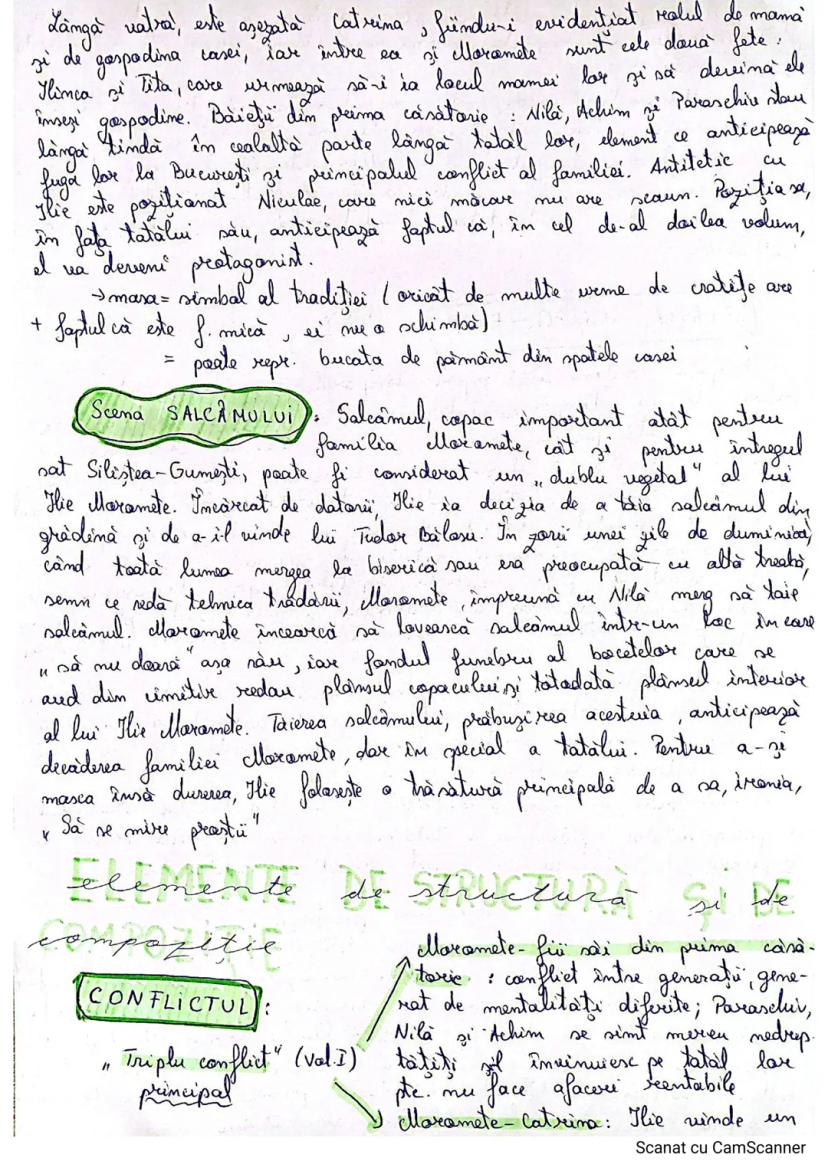 Lângă vatră, este așezată Catrina, fiindu-i evidențiat rolul de mamă
și de gospodina casei, iar între ea și Moromete sunt cele două fete:
Ilinca și Tita, care urmează să-i ia locul mamei lor și să devină ele
însezi gospodine. Băieții din prima căsătorie: Nilă, Achim și Paraschiv stau
lângă tindă în cealaltă parte lângă tatăl lor, element ce anticipează
fuga lor la București și principalul conflict al familiei. Antitetic cu
Ilie este poziționat Niculae, care nici măcar nu are scaun. Poziția sa,
în fața tatălui său, anticipează faptul că, în cel de-al doilea volum,
el va deveni protagonist.
→masa= simbol al tradiției (oricât de multe urme de cratițe are
+ faptul că este f. mică, ei nu o schimbă)
= poate repr. bucata de pământ din spatele casei
Scena SALCÂMULUI: Salcâmul, copac important atât pentru
familia Moromete, cât și pentru întregul
sat Siliștea-Gumești, poate fi considerat un „dublu vegetal" al lui
Ilie Moromete. Încărcat de datorii, Ilie ia decizia de a tăia salcâmul din
grădină și de a-il vinde lui Tudor Bălosu. În zorii unei zile de duminică,
când toată lumea mergea la biserică sau era preocupată cu altă treabă,
semn ce redă tehnica trădării, Moromete, împreună cu Nilă merg să taie
salcâmul. Moromete încearcă să lovească salcâmul într-un loc în care
„să nu doară" așa rău, iar fondul funebru al bocetelor care se
aud din cimitir redau plânsul copacului și totodată plânsul interior
al lui Ilie Moromete. Tăierea salcâmului, prăbușirea acestuia, anticipează
decăderea familiei Moromete, dar în special a tatălui. Pentru a-și
masca însă durerea, Ilie folosește o trăsătură principală de a sa, ironia,
„Să se mire proștii"
elemente de structură și de
compoziție
CONFLICTUL:
„Triplu conflict" (vol. I)
principal
Moromete- fiii săi din prima căsă-
torie: conflict între generații, gene-
rat de mentalități diferite; Paraschiv,
Nilă și Achim se simt mereu nedrep-
tățiți și îl învinuiesc pe tatăl lor
ptc. nu face afaceri rentabile
Moromete-Catrina: Ilie vinde un
Scanat cu CamScanner